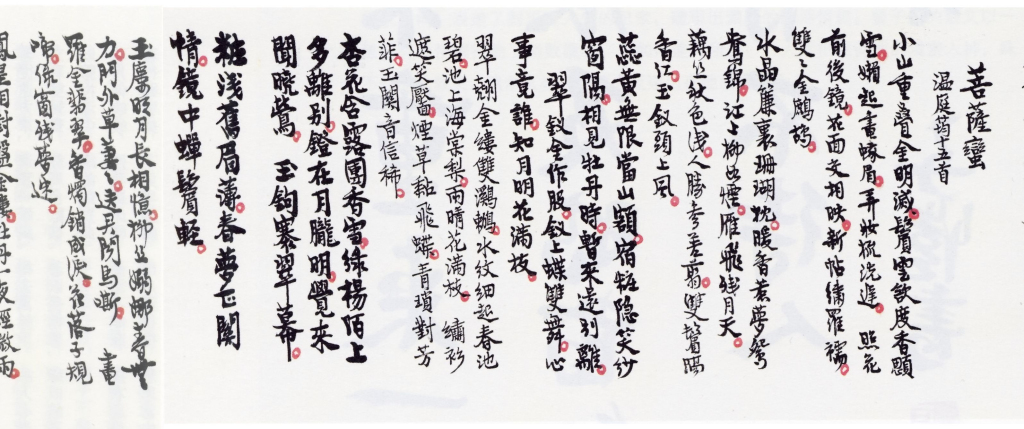 菩薩蠻
温庭筠十五首
小山重疊金明滅鬢雲欲度香顋
雪嬾起畫蛾眉弄妝梳洗遲 照花
前後鏡花面交相映新帖繡羅襦
雙〻金鷓鴣
水晶簾裏珊瑚枕暖香薰夢鴛
鴦錦江上柳如煙雁飛殘月天
藕丝秋色浅人勝参差剪雙鬢隔
香红玉釵頭上风
蕊黄無限當山額宿粧隐笑紗
窗隔相見牡丹時暫来還别離
翠釵金作股釵上蝶雙舞心
事竟誰知月明花滿枝
翠翹金縷雙鸂鶒水紋細起春池
碧池上海棠梨雨晴花滿枝 繡衫
遮笑靨煙草黏飛蝶青瑣對芳
菲玉關音信稀
杏花含露團香雪绿楊陌上
多離别燈在月朧明覺来
聞曉鶯 玉鉤褰翠幕
粧浅舊眉薄春夢正関
情鏡中蟬鬢輕
玉樓明月長相憶柳丝嫋娜春無
力門外草萋〻送君聞馬嘶 畫
羅金翡翠香燭銷成淚花落子規
啼绿窗残夢迷
鳳凰相對盤金縷牡丹一夜經微雨